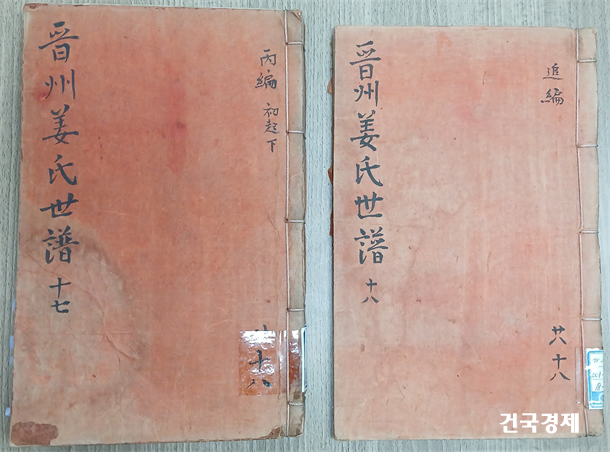 晋州姜氏世譜 十七
丙編 初起下
共十八
晋州姜氏世譜 十八
追編
共十八
건국경제